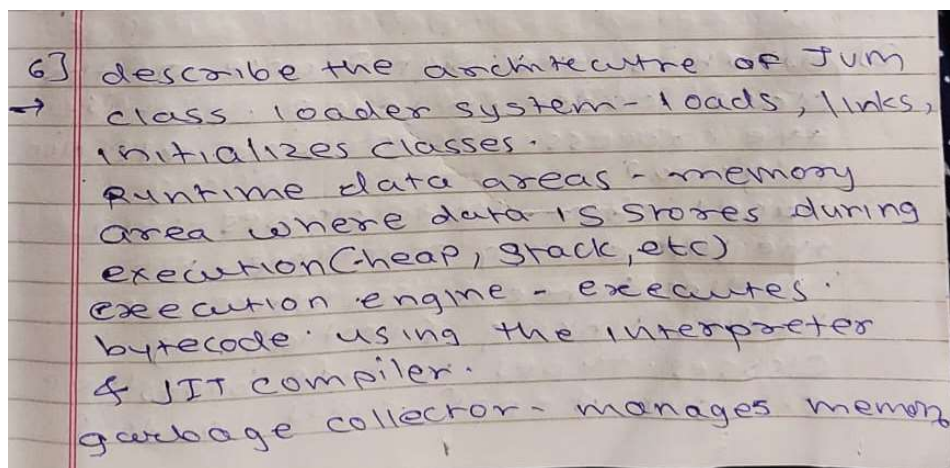 6] describe the architecutre of Jvm
→ class loader system - loads, links,
initializes classes.
Runtime data areas - memory
area where data is stores during
execution (heap, stack, etc)
execution engine - executes.
bytecode using the interpreter
& JIT compiler.
garbage collector - manages memory